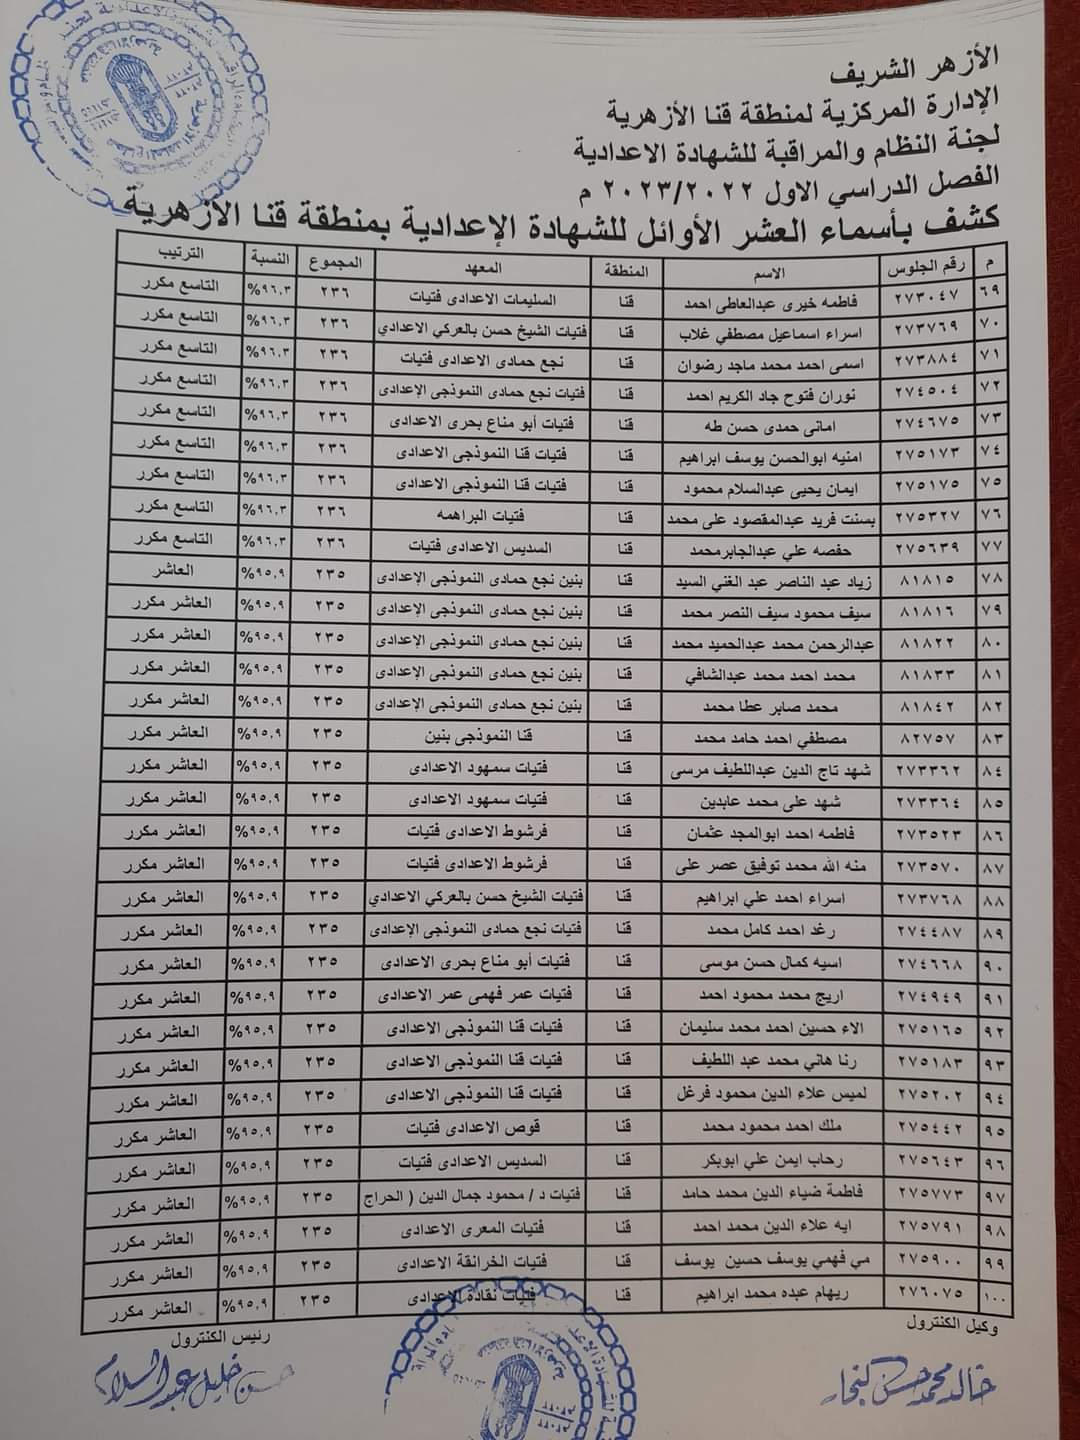 الأزهر الشريف
الإدارة المركزية لمنطقة قنا الأزهرية
لجنة النظام والمراقبة للشهادة الاعدادية
الفصل الدراسي الاول ٢٠٢٣/٢٠٢٢ م
كشف بأسماء العشر الأوائل للشهادة الإعدادية بمنطقة قنا الأزهرية
م رقم الجلوس الاسم المنطقة المعهد المجموع النسبة الترتيب
٦٩ ٢٧٣٠٤٧ فاطمه خيرى عبدالعاطى احمد قنا السليمات الاعدادى فتيات ٢٣٦ ٩٦,٣% التاسع مكرر
٧٠ ٢٧٣٧٦٩ اسراء اسماعيل مصطفي غلاب قنا فتيات الشيخ حسن بالعركي الاعدادي ٢٣٦ ٩٦,٣% التاسع مكرر
٧١ ٢٧٣٨٨٤ اسمى احمد محمد ماجد رضوان قنا نجع حمادى الاعدادى فتيات ٢٣٦ ٩٦,٣% التاسع مكرر
٧٢ ٢٧٤٥٠٤ نوران فتوح جاد الكريم احمد قنا فتيات نجع حمادى النموذجى الإعدادى ٢٣٦ ٩٦,٣% التاسع مكرر
٧٣ ٢٧٤٦٧٥ امانى حمدى حسن طه قنا فتيات أبو مناع بحرى الاعدادى ٢٣٦ ٩٦,٣% التاسع مكرر
٧٤ ٢٧٥١٧٣ امنيه ابوالحسن يوسف ابراهيم قنا فتيات قنا النموذجى الاعدادى ٢٣٦ ٩٦,٣% التاسع مكرر
٧٥ ٢٧٥١٧٥ ايمان يحيى عبدالسلام محمود قنا فتيات قنا النموذجى الاعدادى ٢٣٦ ٩٦,٣% التاسع مكرر
٧٦ ٢٧٥٣٢٧ بسنت فريد عبدالمقصود على محمد قنا فتيات البراهمه ٢٣٦ ٩٦,٣% التاسع مكرر
٧٧ ٢٧٥٦٣٩ حفصه علي عبدالجابرمحمد قنا السديس الاعدادى فتيات ٢٣٦ ٩٦,٣% التاسع مكرر
٧٨ ٨١٨١٥ زياد عبد الناصر عبد الغني السيد قنا بنين نجع حمادى النموذجى الإعدادى ٢٣٥ ٩٥,٩% العاشر
٧٩ ٨١٨١٦ سيف محمود سيف النصر محمد قنا بنين نجع حمادى النموذجى الإعدادى ٢٣٥ ٩٥,٩% العاشر مكرر
٨٠ ٨١٨٢٢ عبدالرحمن محمد عبدالحميد محمد قنا بنين نجع حمادى النموذجى الإعدادى ٢٣٥ ٩٥,٩% العاشر مكرر
٨١ ٨١٨٣٣ محمد احمد محمد عبدالشافي قنا بنين نجع حمادى النموذجى الإعدادى ٢٣٥ ٩٥,٩% العاشر مكرر
٨٢ ٨١٨٤٢ محمد صابر عطا محمد قنا بنين نجع حمادى النموذجى الإعدادى ٢٣٥ ٩٥,٩% العاشر مكرر
٨٣ ٨٢٧٥٧ مصطفي احمد حامد محمد قنا قنا النموذجى بنين ٢٣٥ ٩٥,٩% العاشر مكرر
٨٤ ٢٧٣٣٦٢ شهد تاج الدين عبداللطيف مرسى قنا فتيات سمهود الاعدادى ٢٣٥ ٩٥,٩% العاشر مكرر
٨٥ ٢٧٣٣٦٤ شهد على محمد عابدين قنا فتيات سمهود الاعدادى ٢٣٥ ٩٥,٩% العاشر مكرر
٨٦ ٢٧٣٥٢٣ فاطمه احمد ابوالمجد عثمان قنا فرشوط الاعدادى فتيات ٢٣٥ ٩٥,٩% العاشر مكرر
٨٧ ٢٧٣٥٧٠ منه الله محمد توفيق عصر على قنا فرشوط الاعدادى فتيات ٢٣٥ ٩٥,٩% العاشر مكرر
٨٨ ٢٧٣٧٦٨ اسراء احمد علي ابراهيم قنا فتيات الشيخ حسن بالعركي الاعدادي ٢٣٥ ٩٥,٩% العاشر مكرر
٨٩ ٢٧٤٤٨٧ رغد احمد كامل محمد قنا فتيات نجع حمادى النموذجى الإعدادى ٢٣٥ ٩٥,٩% العاشر مكرر
٩٠ ٢٧٤٦٦٨ اسيه كمال حسن موسى قنا فتيات أبو مناع بحرى الاعدادى ٢٣٥ ٩٥,٩% العاشر مكرر
٩١ ٢٧٤٩٤٩ اريج محمد محمود احمد قنا فتيات عمر فهمى عمر الاعدادى ٢٣٥ ٩٥,٩% العاشر مكرر
٩٢ ٢٧٥١٦٥ الاء حسين احمد محمد سليمان قنا فتيات قنا النموذجى الاعدادى ٢٣٥ ٩٥,٩% العاشر مكرر
٩٣ ٢٧٥١٨٣ رنا هاني محمد عبد اللطيف قنا فتيات قنا النموذجى الاعدادى ٢٣٥ ٩٥,٩% العاشر مكرر
٩٤ ٢٧٥٢٠٢ لميس علاء الدين محمود فرغل قنا فتيات قنا النموذجى الاعدادى ٢٣٥ ٩٥,٩% العاشر مكرر
٩٥ ٢٧٥٤٤٢ ملك احمد محمود محمد قنا قوص الاعدادى فتيات ٢٣٥ ٩٥,٩% العاشر مكرر
٩٦ ٢٧٥٦٤٣ رحاب ايمن علي ابوبكر قنا السديس الاعدادى فتيات ٢٣٥ ٩٥,٩% العاشر مكرر
٩٧ ٢٧٥٧٧٣ فاطمة ضياء الدين محمد حامد قنا فتيات د / محمود جمال الدين ( الحراج ٢٣٥ ٩٥,٩% العاشر مكرر
٩٨ ٢٧٥٧٩١ ايه علاء الدين محمد احمد قنا فتيات المعرى الاعدادى ٢٣٥ ٩٥,٩% العاشر مكرر
٩٩ ٢٧٥٩٠٠ مي فهمي يوسف حسين يوسف قنا فتيات الخرانقة الاعدادى ٢٣٥ ٩٥,٩% العاشر مكرر
١٠٠ ٢٧٦٠٧٥ ريهام عبده محمد ابراهيم قنا فتيات نقادة الإعدادى ٢٣٥ ٩٥,٩% العاشر مكرر
وكيل الكنترول رئيس الكنترول
خالد محمد حسن حسن خليل عبدالسلام